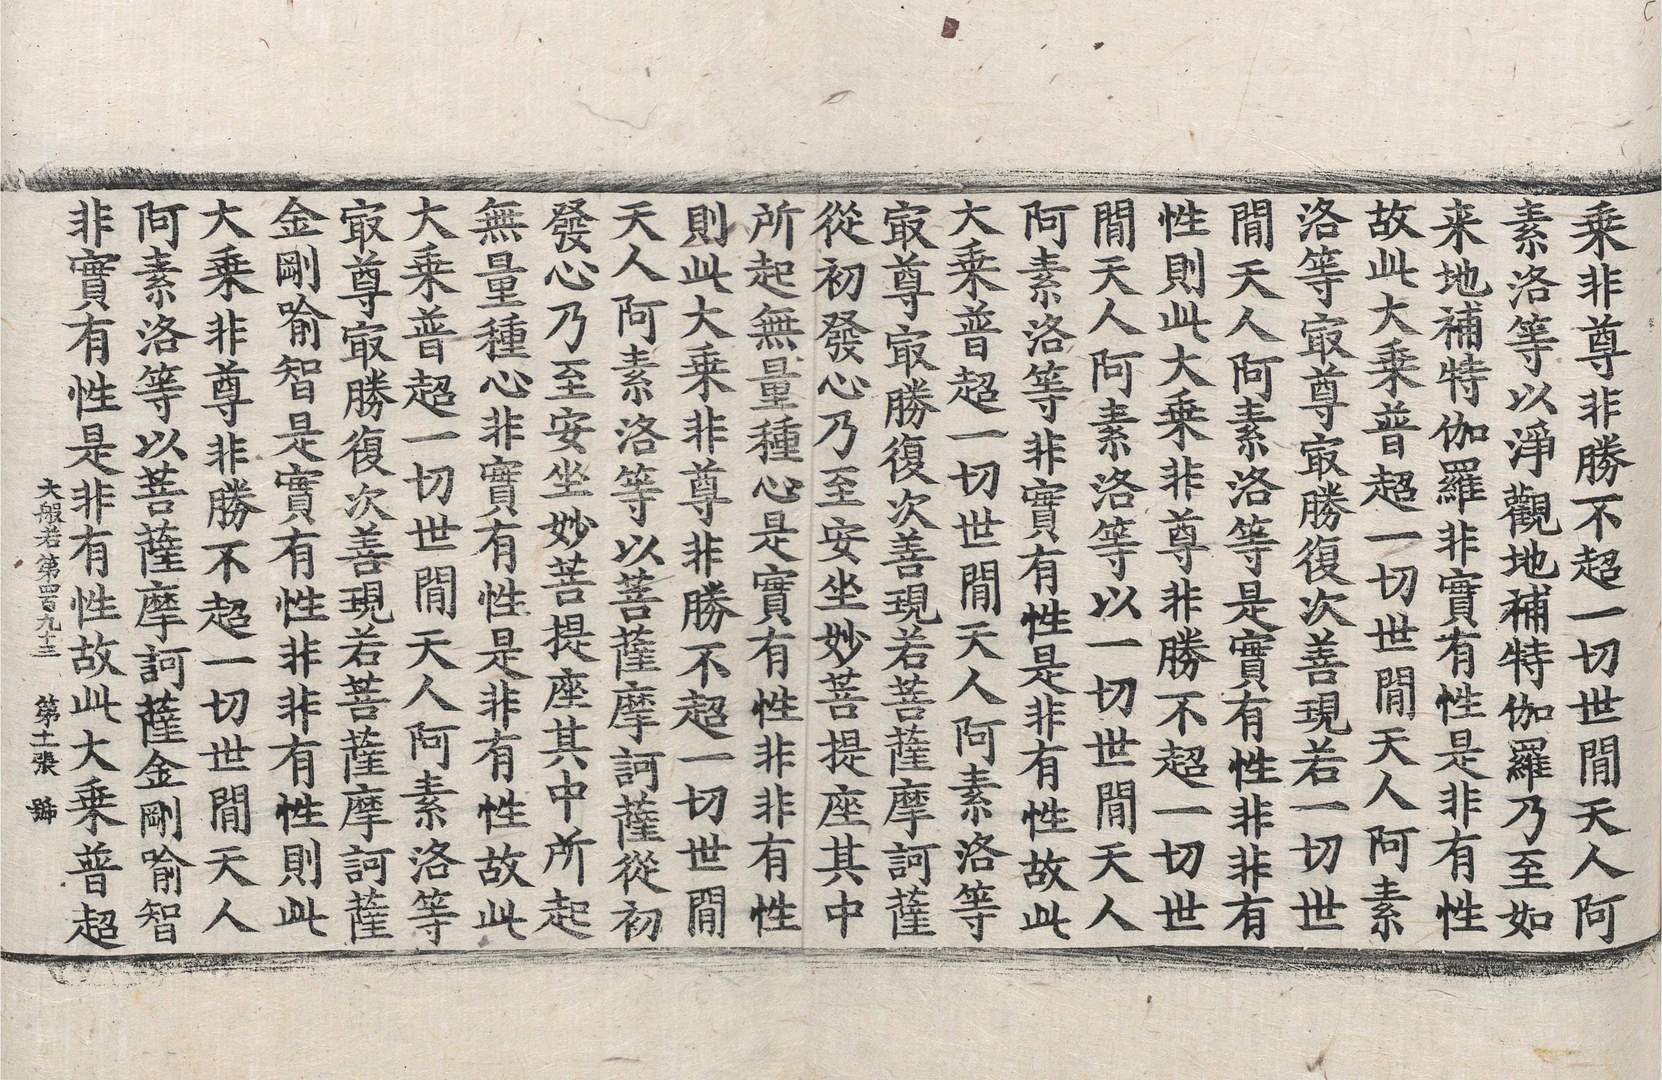 乘非尊非勝不超一切世閒天人阿
素洛等以淨觀地補特伽羅乃至如
来地補特伽羅非實有性是非有性
故此大乘普超一切世閒天人阿素
洛等㝡尊㝡勝復次善現若一切世
閒天人阿素洛等是實有性非非有
性則此大乘非尊非勝不超一切世
閒天人阿素洛等以一切世閒天人
阿素洛等非實有性是非有性故此
大乘普超一切世閒天人阿素洛等
㝡尊㝡勝復次善現若菩薩摩訶薩
從初發心乃至安坐妙菩提座其中
所起無量種心是實有性非非有性
則此大乘非尊非勝不超一切世閒
天人阿素洛等以菩薩摩訶薩從初
發心乃至安坐妙菩提座其中所起
無量種心非實有性是非有性故此
大乘普超一切世閒天人阿素洛等
㝡尊㝡勝復次善現若菩薩摩訶薩
金剛喻智是實有性非非有性則此
大乘非尊非勝不超一切世閒天人
阿素洛等以菩薩摩訶薩金剛喻智
非實有性是非有性故此大乘普超
大般若第四百九十三 第十一張 號